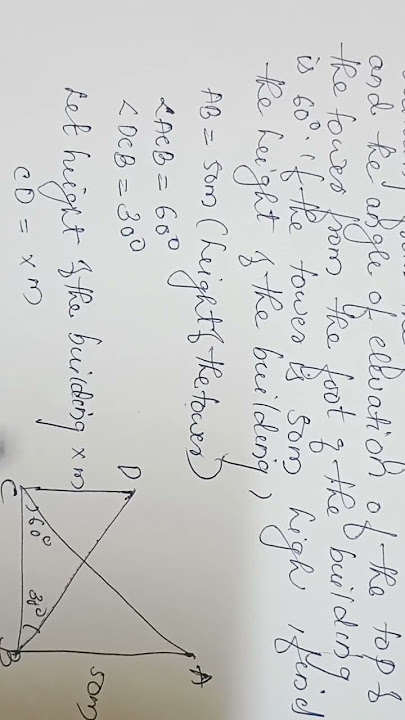 and the angle of elevation of the top of
the tower from the foot of the building
is 60°. If the tower is 50m high, find
the height of the building,
AB = 50m (height of the tower)
∠ACB = 60°
∠DCB = 30°
Let height of the building x m
CD = x m
A
D
50m
60°
30°
C
B